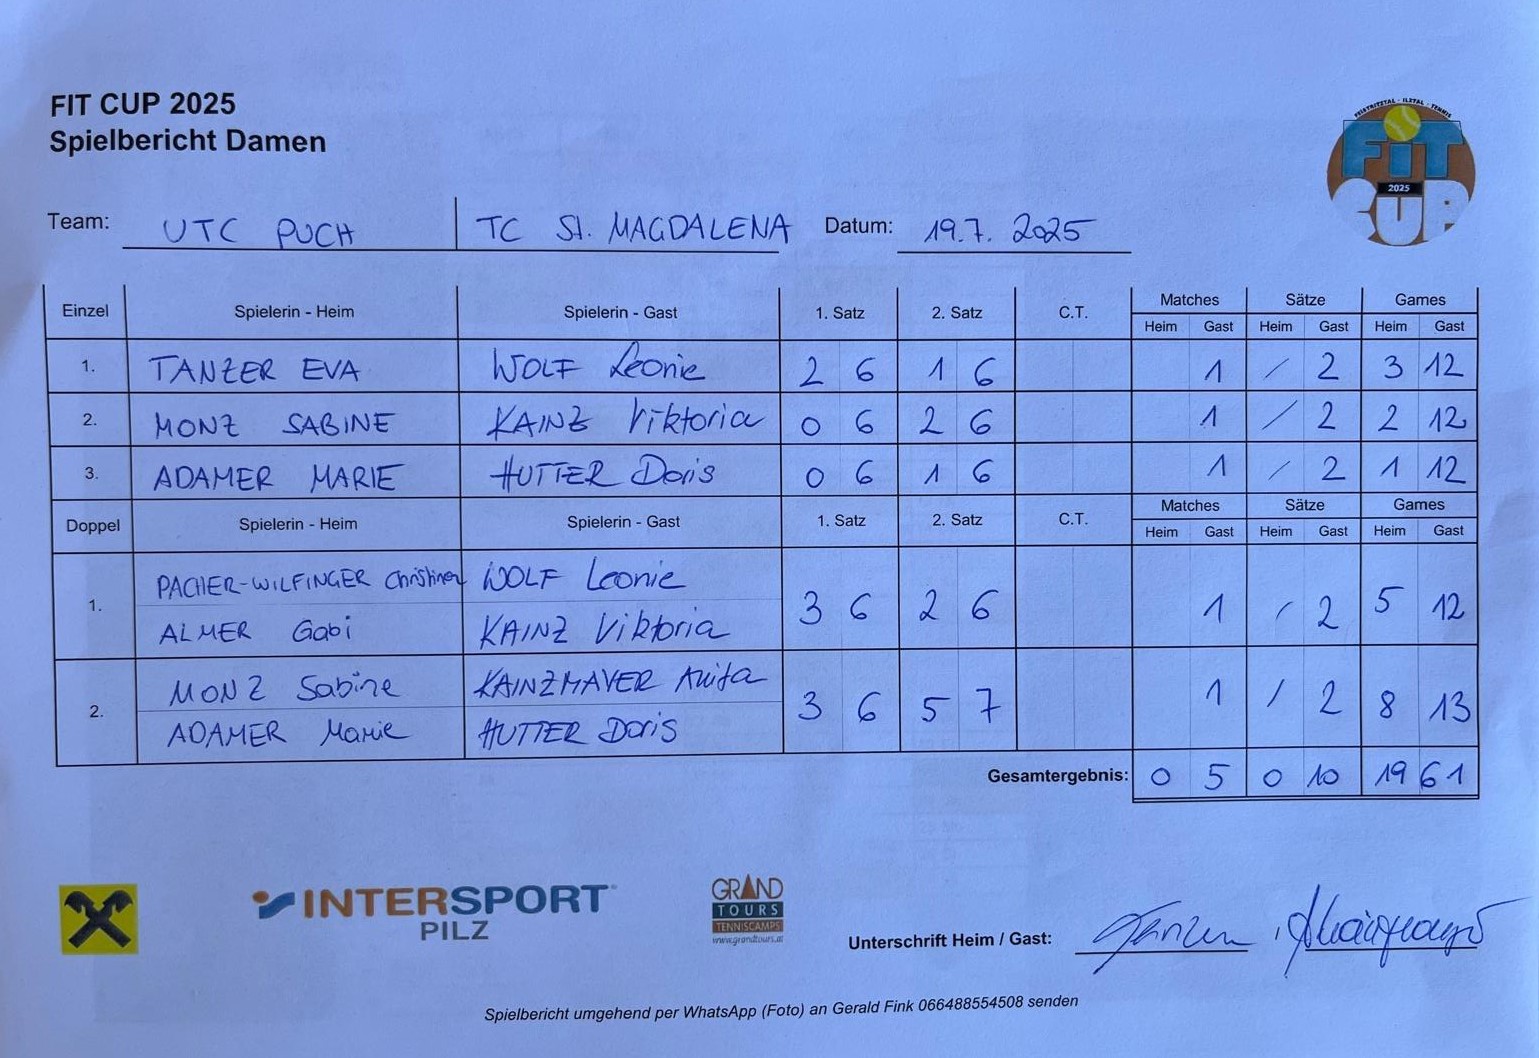 FIT CUP 2025
Spielbericht Damen
FEISTRITZTAL - ILZTAL - TENNIS
FiT
2025
CUP
Team: UTC PUCH TC St. MAGDALENA Datum: 19.7. 2025
Einzel Spielerin - Heim Spielerin - Gast 1. Satz 2. Satz C.T. Matches Sätze Games
Heim Gast Heim Gast Heim Gast
1. TANZER EVA WOLF Leonie 2 6 1 6 1 / 2 3 12
2. MONZ SABINE KAINZ Viktoria 0 6 2 6 1 / 2 2 12
3. ADAMER MARIE HUTTER Doris 0 6 1 6 1 / 2 1 12
Doppel Spielerin - Heim Spielerin - Gast 1. Satz 2. Satz C.T. Matches Sätze Games
Heim Gast Heim Gast Heim Gast
PACHER-WILFINGER WOLF Leonie
1. 3 6 2 6 1 / 2 5 12
ALMER Gabi KAINZ Viktoria
MONZ Sabine KAINZMAYER Anita
2. 3 6 5 7 1 / 2 8 13
ADAMER Marie HUTTER Doris
Gesamtergebnis: 0 5 0 10 19 61
INTERSPORT
PILZ
GRAND
TOURS
TENNISCAMPS
www.grandtours.at
Unterschrift Heim / Gast:
Spielbericht umgehend per WhatsApp (Foto) an Gerald Fink 066488554508 senden